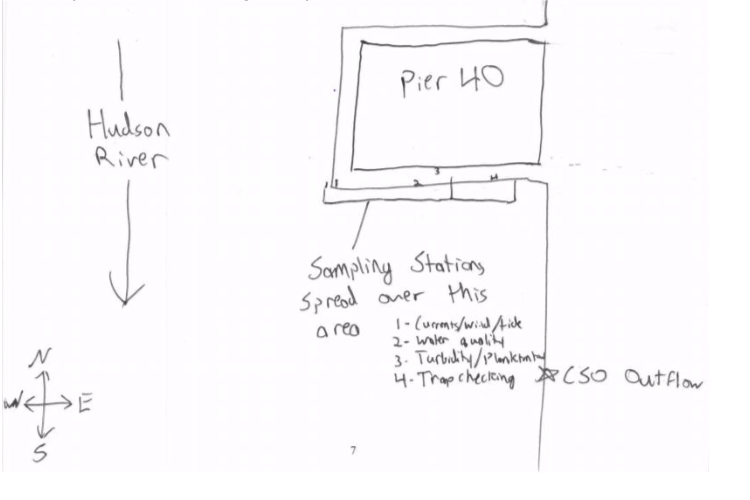 Pier 40
Hudson
River
1
2
3
4
Sampling Stations
Spread over this
area
1- Currents/wind/tide
2- water quality
3. Turbidity/Plankton
4- Trap checking
CSO Outflow
N
W
E
S
7